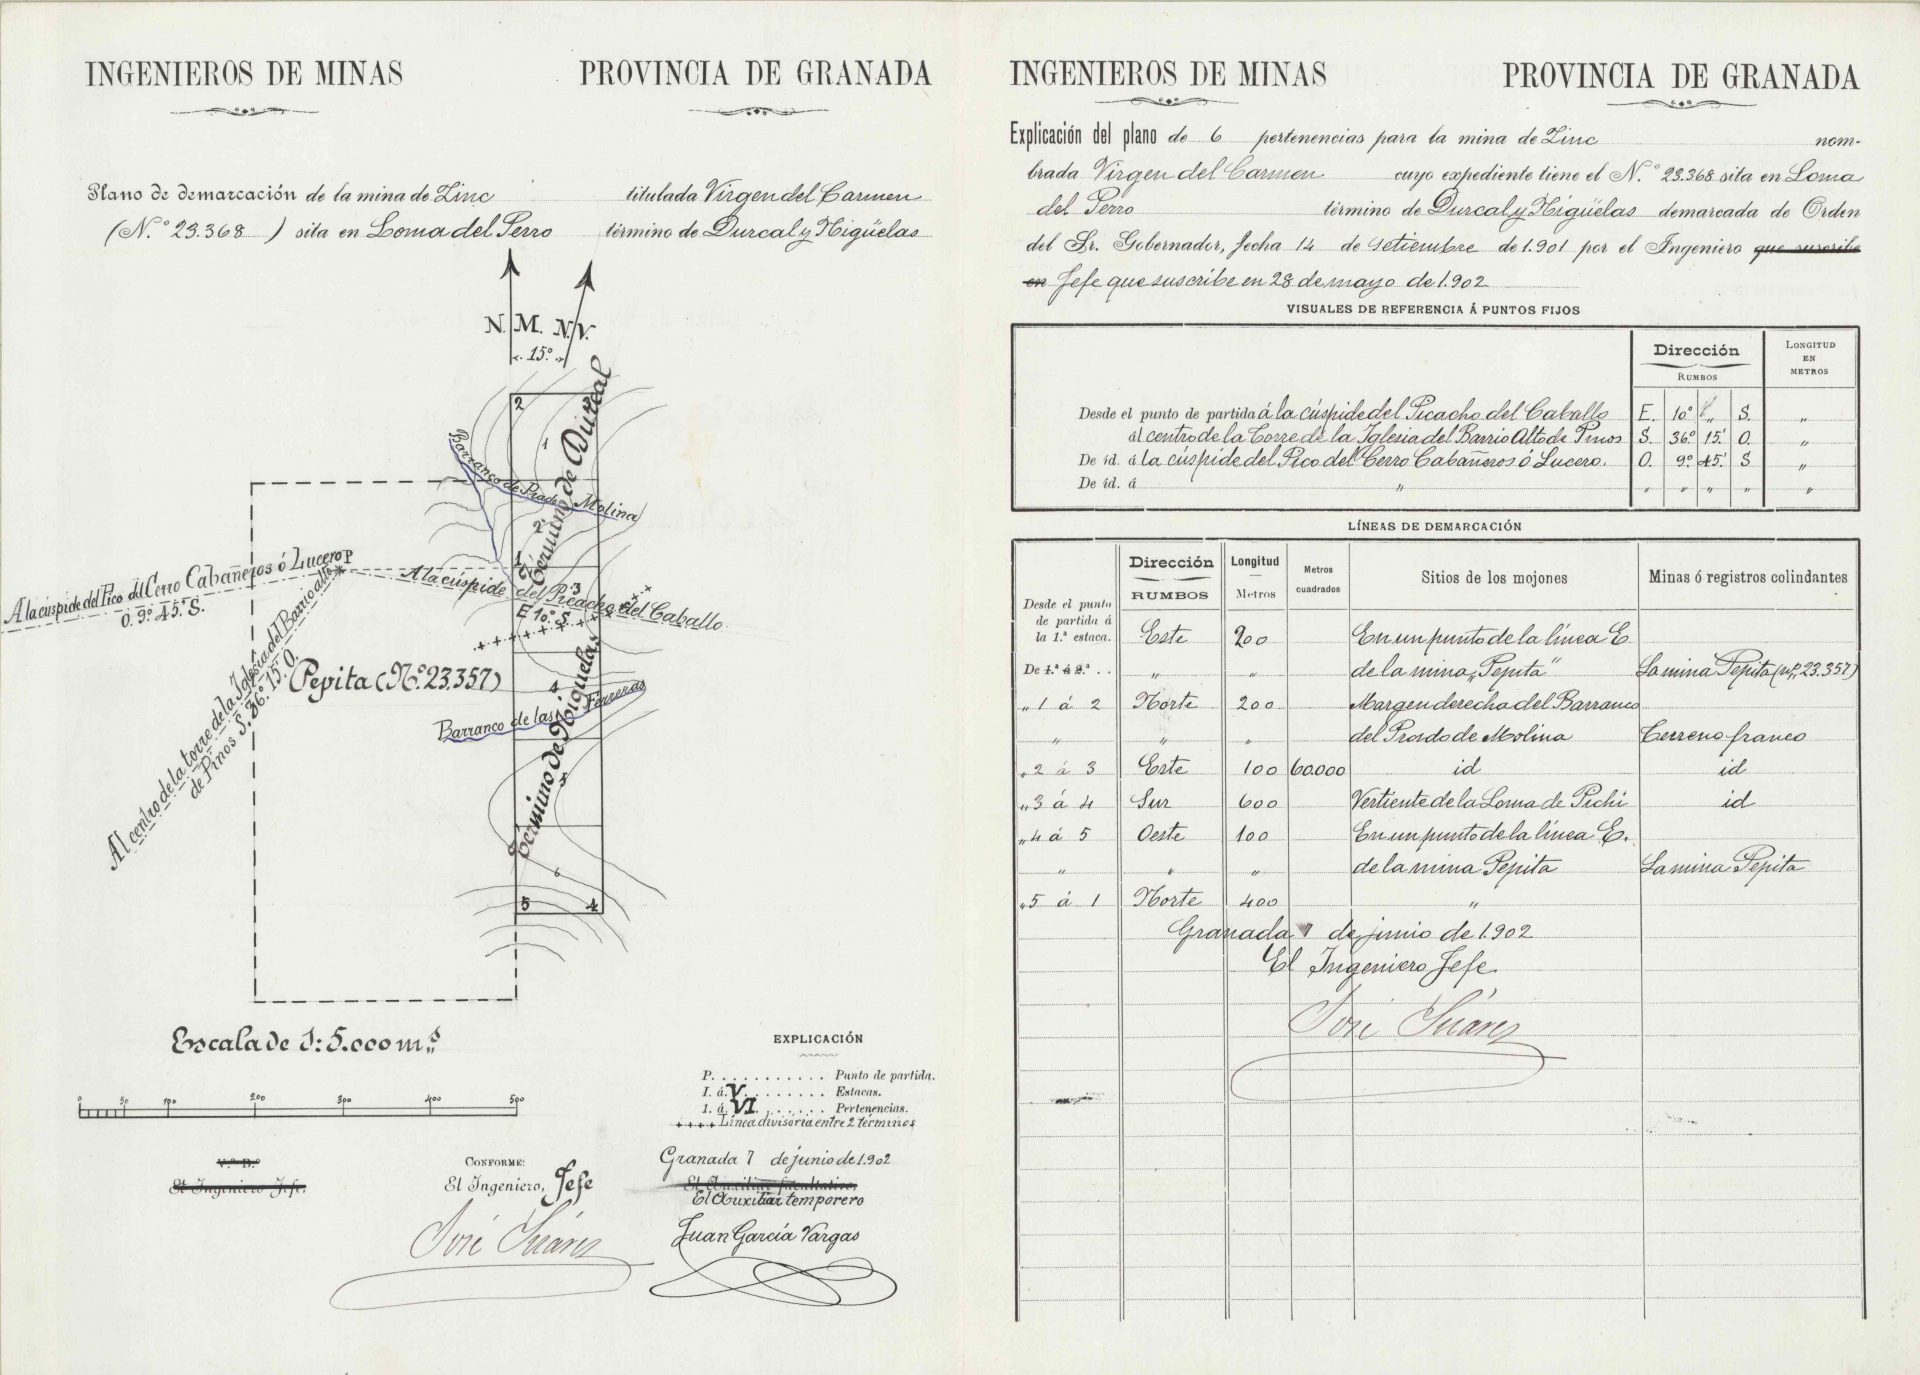 INGENIEROS DE MINAS
PROVINCIA DE GRANADA
Plano de demarcación de la mina de Zinc titulada Virgen del Carmen
(N.º 23.368) sita en Loma del Perro término de Durcal y Nigüelas
N. M. N. V.
15º
2
3
1
Término de Durcal
Barranco de Prado Molina
2
1
A la cúspide del Pico del Cerro Cabañeros ó Lucero P
O. 9º. 45.' S.
A la cúspide del Picacho del Caballo
3
E 10º. S.
Al centro de la torre de la Iglesia del Barrio alto
de Pinos S. 36º. 15. O.
Pepita (Nº. 23.357)
4
Barranco de las Ferreras
Término de Niguelas
5
6
5
4
Escala de 1: 5.000 m.s
0 50 100 200 300 400 500
EXPLICACIÓN
P. . . . . . . . . . . . Punto de partida.
I. á. V. . . . . . . . Estacas.
1. á. VI. . . . . . . Pertenencias.
++++ Línea divisoria entre 2 términos
Granada 7 de junio de 1.902
V.º B.º
El Ingeniero Jefe.
CONFORME:
El Ingeniero, Jefe
José Suárez
El Auxiliar facultativo,
El Auxiliar temporero
Juan García Vargas
INGENIEROS DE MINAS
PROVINCIA DE GRANADA
Explicación del plano de 6 pertenencias para la mina de Zinc nom-
brada Virgen del Carmen cuyo expediente tiene el N.º 23.368 sita en Loma
del Perro término de Durcal y Nigüelas demarcada de Orden
del Sr. Gobernador, fecha 14 de setiembre de 1.901 por el Ingeniero que suscribe
en Jefe que suscribe en 28 de mayo de 1.902
VISUALES DE REFERENCIA Á PUNTOS FIJOS
Dirección
RUMBOS
LONGITUD
EN
METROS
Desde el punto de partida á la cúspide del Picacho del Caballo E. 10º „ S. „
ál centro de la Torre de la Iglesia del Barrio Alto de Pinos S. 36º 15' O. „
De id. á la cúspide del Pico del Cerro Cabañeros ó Lucero. O. 9º 45' S „
De id. á „ „ „ „ „ „
LÍNEAS DE DEMARCACIÓN
Dirección
RUMBOS
Longitud
Metros
Metros
cuadrados
Sitios de los mojones
Minas ó registros colindantes
Desde el punto
de partida á
la 1.ª estaca. Este 200 En un punto de la línea E.
De 1.ª á 2.ª . . „ „ de la mina „Pepita" La mina Pepita (nº. 23.357)
„ 1 á 2 Norte 200 Margen derecha del Barranco
„ „ „ del Prado de Molina Terreno franco
„ 2 á 3 Este 100 60.000 id id
„ 3 á 4 Sur 600 Vertiente de la Loma de Pichi id
„ 4 á 5 Oeste 100 En un punto de la línea E.
„ „ „ de la mina Pepita La mina Pepita
„ 5 á 1 Norte 400 „
Granada 7 de junio de 1.902
El Ingeniero Jefe
José Suárez